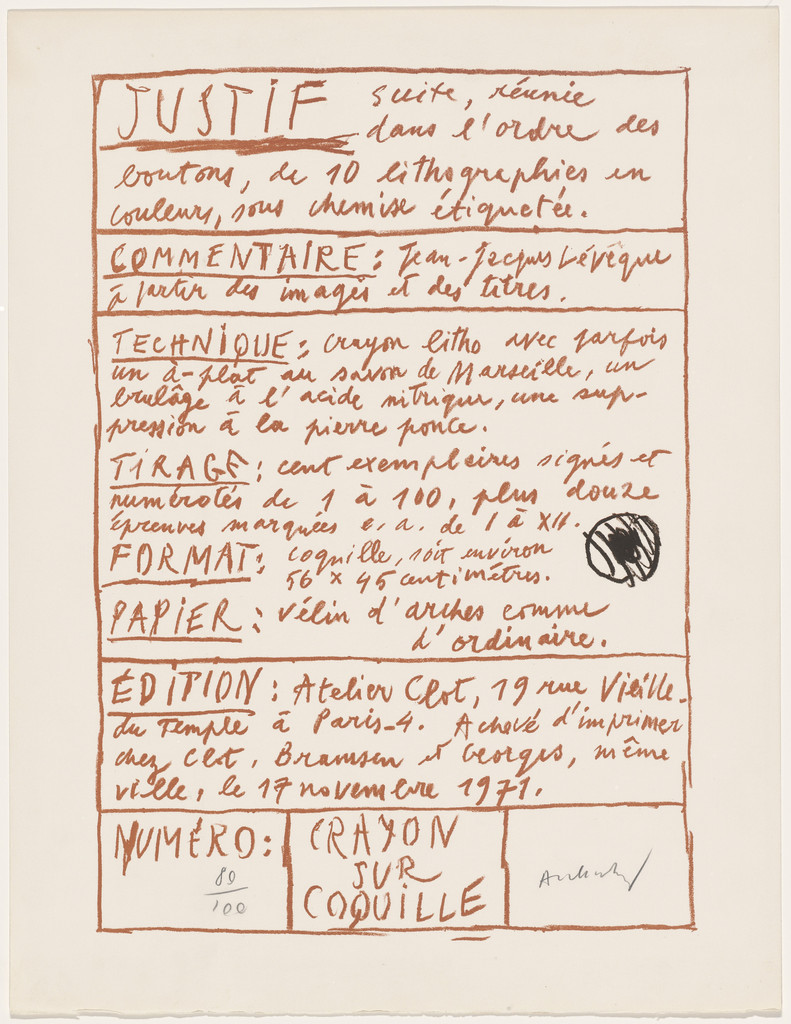 JUSTIF suite, réunie
dans l'ordre des
boutons, de 10 lithographies en
couleurs, sous chemise étiquetée.
COMMENTAIRE: Jean-Jacques Lévêque
à partir des images et des titres.
TECHNIQUE: crayon litho avec parfois
un à-plat au savon de Marseille, un
brulâge à l'acide nitrique, une sup-
pression à la pierre ponce.
TIRAGE: cent exemplaires signés et
numérotés de 1 à 100, plus douze
épreuves marquées e.a. de I à XII.
FORMAT: coquille, soit environ
56 x 45 centimètres.
PAPIER: vélin d'arches comme
d'ordinaire.
ÉDITION: Atelier Clot, 19 rue Vieille-
du Temple à Paris-4. Achevé d'imprimer
chez Clot, Bramsen et Georges, même
ville, le 17 novembre 1971.
NUMÉRO:
80
100
CRAYON
SUR
COQUILLE